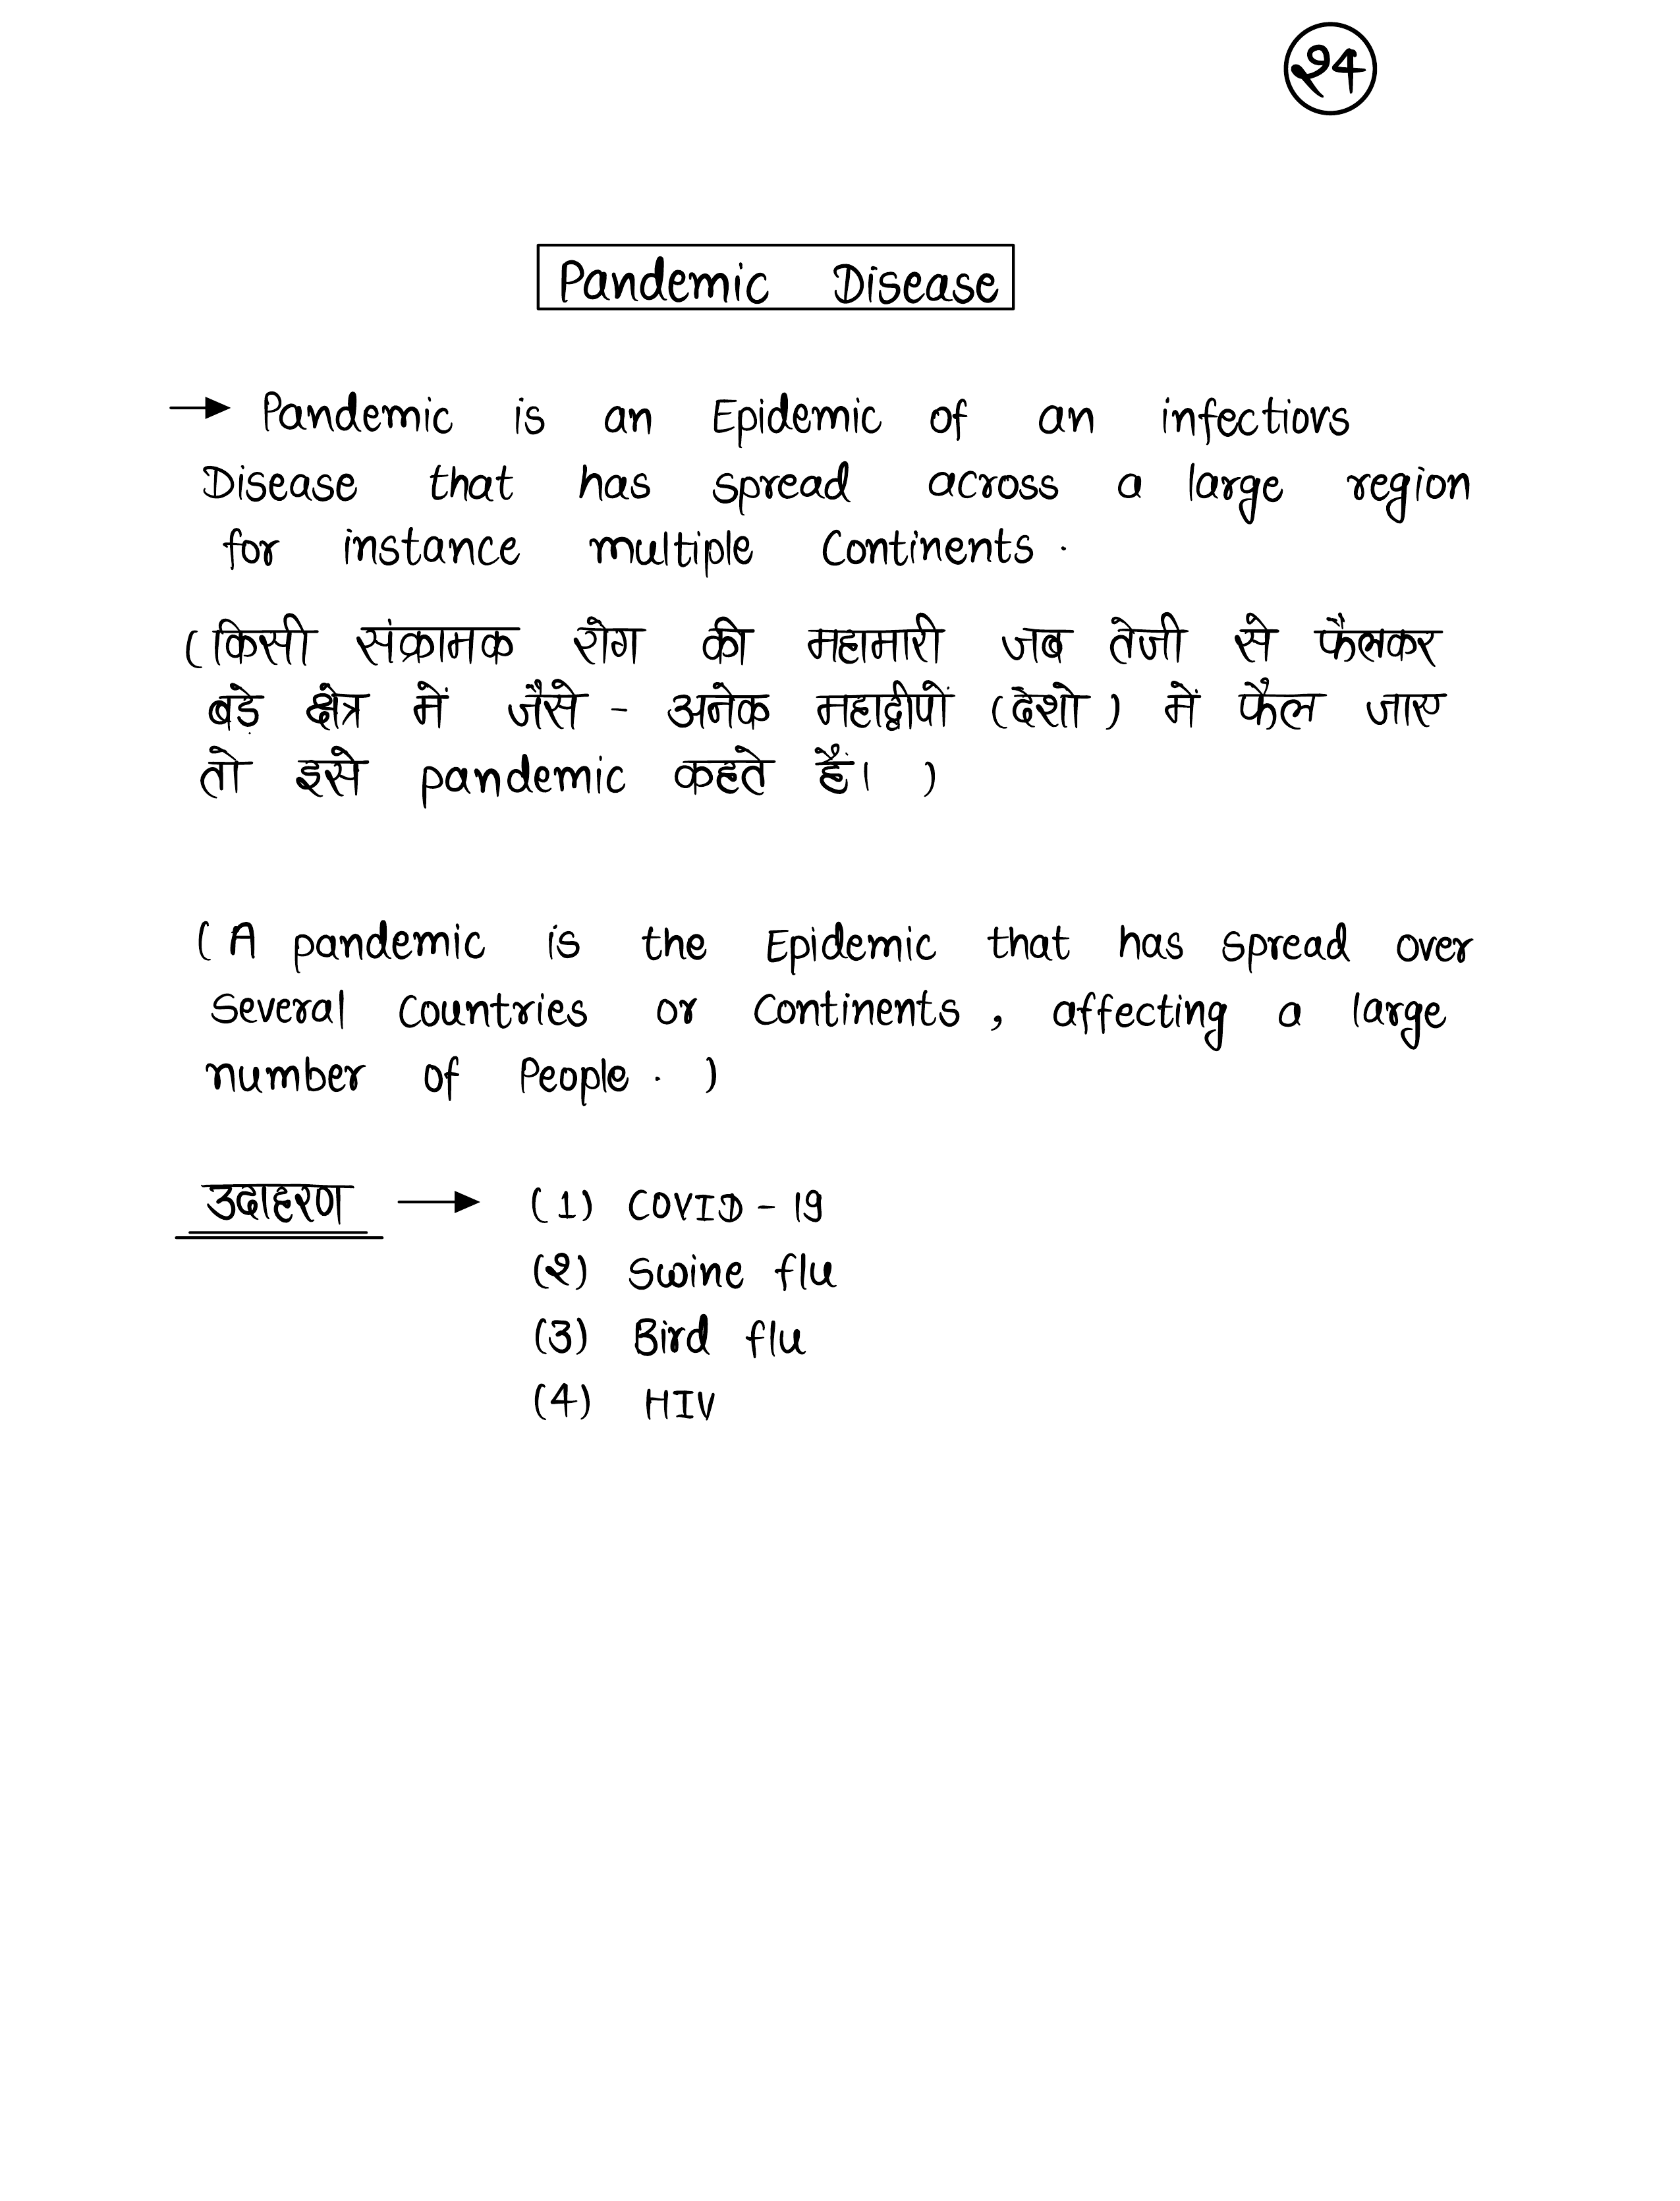 24
Pandemic Disease
→ Pandemic is an Epidemic of an infectiovs
Disease that has spread across a large region
for instance multiple Continents .
(किसी संक्रामक रोग की महामारी जब तेजी से फैलकर
बड़े क्षेत्र में जैसे - अनेक महाद्वीपों (देशो) में फैल जाए
तो इसे pandemic कहते हैं। )
( A pandemic is the Epidemic that has spread over
Several Countries or Continents , affecting a large
number of People . )
उदाहरण → (1) COVID - 19
(2) Swine flu
(3) Bird flu
(4) HIV